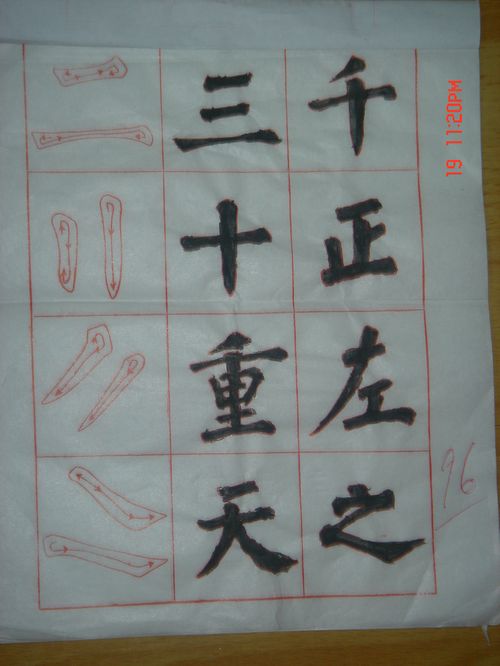 三千
十正
重左
天之
96
19 11:20PM